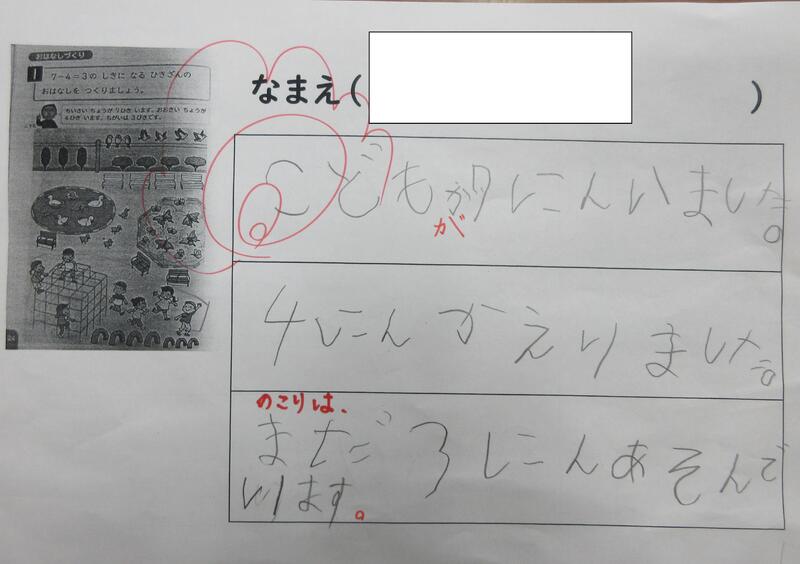 おはなしづくり
1 7-4=3の しきに なる ひきざんの
おはなしを つくりましょう。
ちいさい ちょうが 7ひき います。おおきい ちょうが
4ひき います。ちがいは 3びきです。
なまえ( )
こどもが7にんいました。
が
4にんかえりました。
のこりは、
まだ3にんあそんで
います。